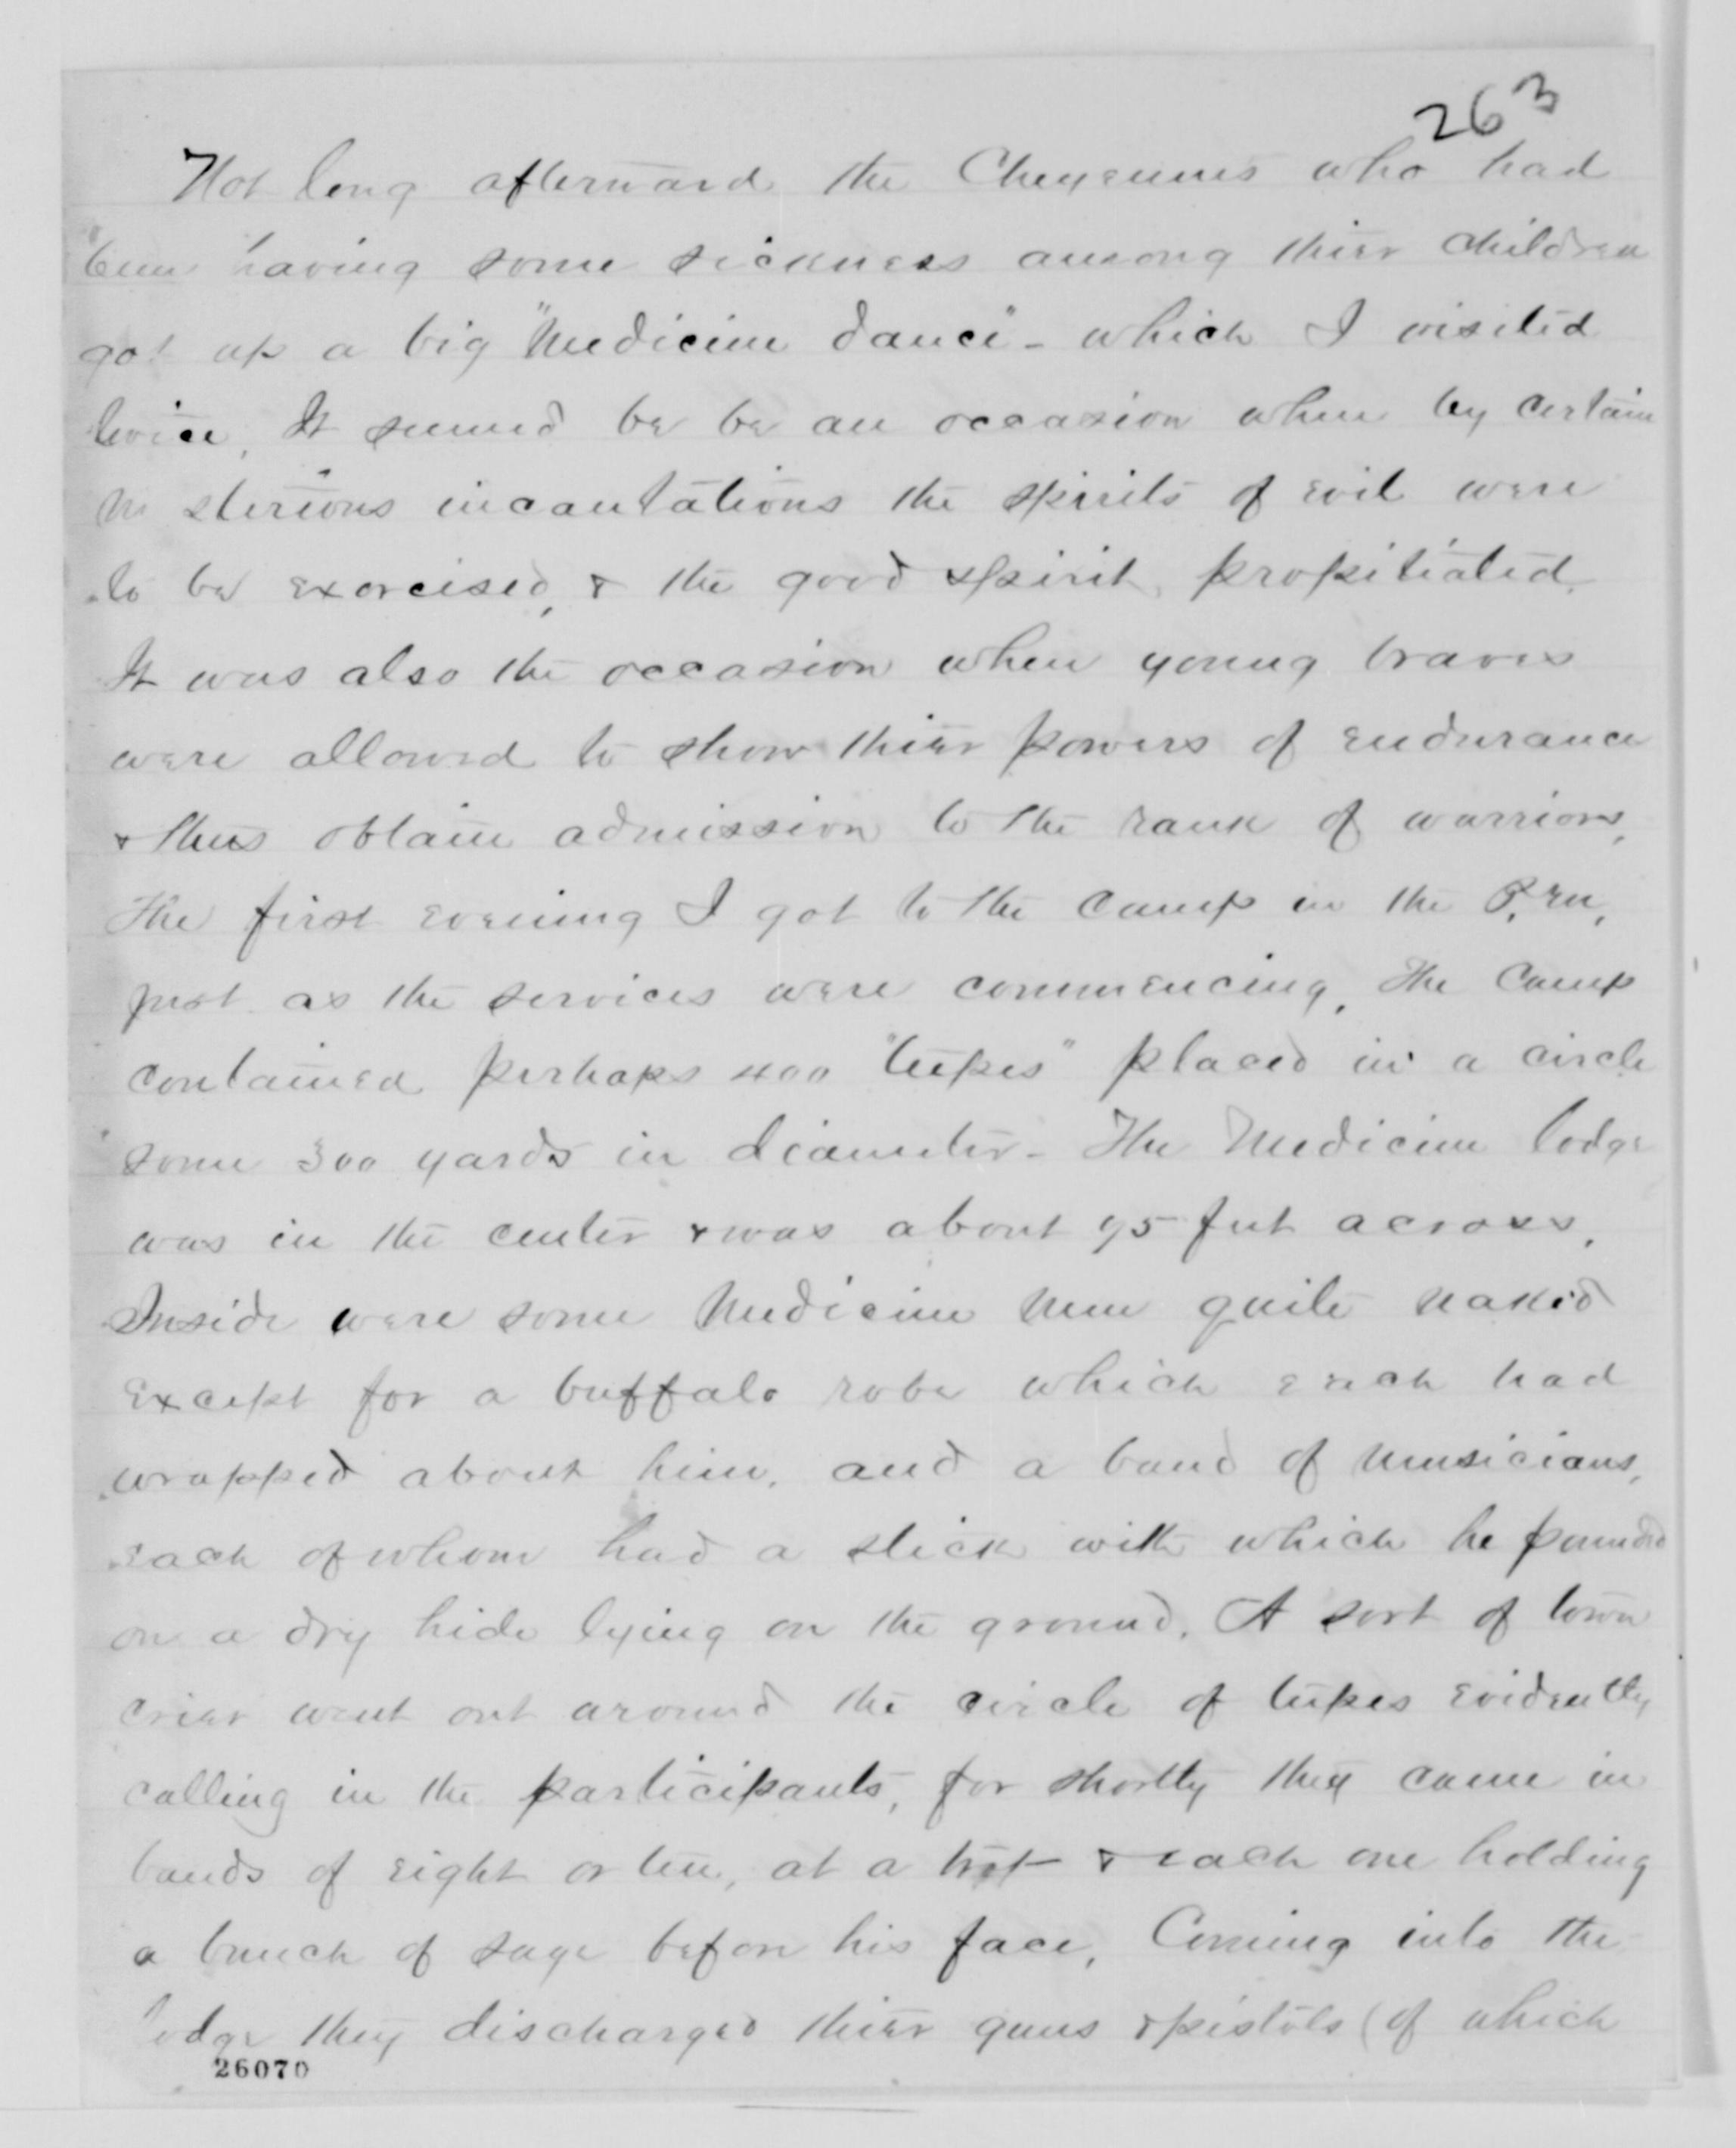 263
Not long afterward the Cheyennes who had
been having some sickness among thier children
got up a big "Medicine dance" - which I visited
twice. It seemed be be an occasion when by certain
mysterious incantations the spirits of evil were
to be exorcised, & the good spirit propitiated.
It was also the occasion when young braves
were allowed to show thier powers of endurance
& thus obtain admission to the rank of warriors.
The first evening I got to the camp in the P.M.
just as the services were commencing. The camp
contained perhaps 400 "tepes" placed in a circle
some 300 yards in diameter - The Medicine lodge
was in the center & was about 75 feet across.
Inside were some Medicine Men quite naked
except for a buffalo robe which each had
wrapped about him, and a band of musicians,
each of whom had a stick with which he pounded
on a dry hide lying on the ground. A sort of town
crier went out around the circle of tepes evidently
calling in the participants, for shortly they came in
bands of eight or ten, at a trot & each one holding
a bunch of sage before his face. Coming into the
lodge they discharged thier guns & pistols (of which
26070